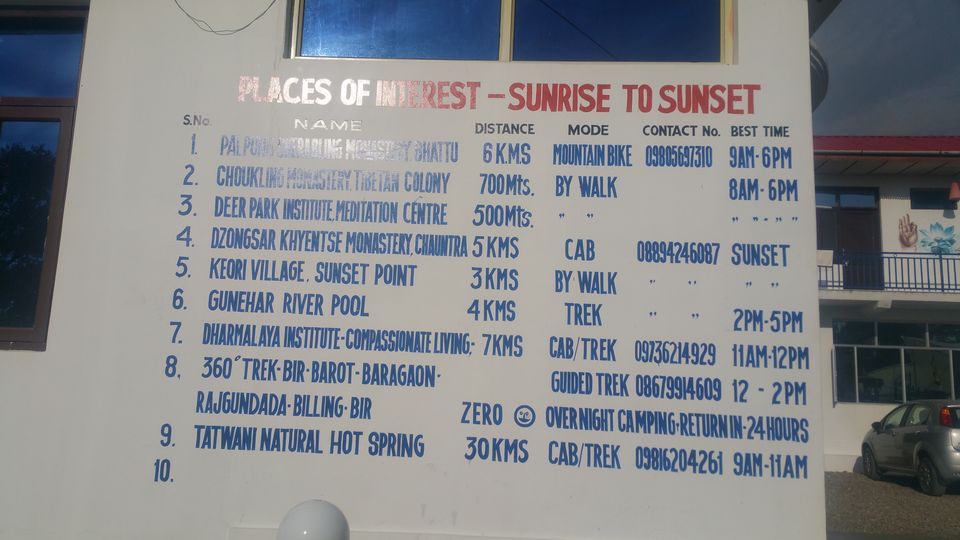 PLACES OF INTEREST - SUNRISE TO SUNSET
S.No. NAME DISTANCE MODE CONTACT No. BEST TIME
1. PALPUNG SHERABLING MONASTERY, BHATTU 6 KMS MOUNTAIN BIKE 09805697310 9AM-6PM
2. CHOUKLING MONASTERY, TIBETAN COLONY 700Mts. BY WALK 8AM-6PM
3. DEER PARK INSTITUTE, MEDITATION CENTRE 500Mts. " " " " - " "
4. DZONGSAR KHYENTSE MONASTERY, CHAUNTRA 5 KMS CAB 08894246087 SUNSET
5. KEORI VILLAGE, SUNSET POINT 3 KMS BY WALK " " " "
6. GUNEHAR RIVER POOL 4 KMS TREK " " 2PM-5PM
7. DHARMALAYA INSTITUTE-COMPASSIONATE LIVING- 7KMS CAB/TREK 09736214929 11AM-12PM
8. 360° TREK-BIR-BAROT-BARAGAON- GUIDED TREK 08679914609 12 - 2PM
RAJGUNDADA-BILLING-BIR ZERO OVERNIGHT CAMPING-RETURN IN-24 HOURS
9. TATWANI NATURAL HOT SPRING 30 KMS CAB/TREK 09816204261 9AM-11AM
10.